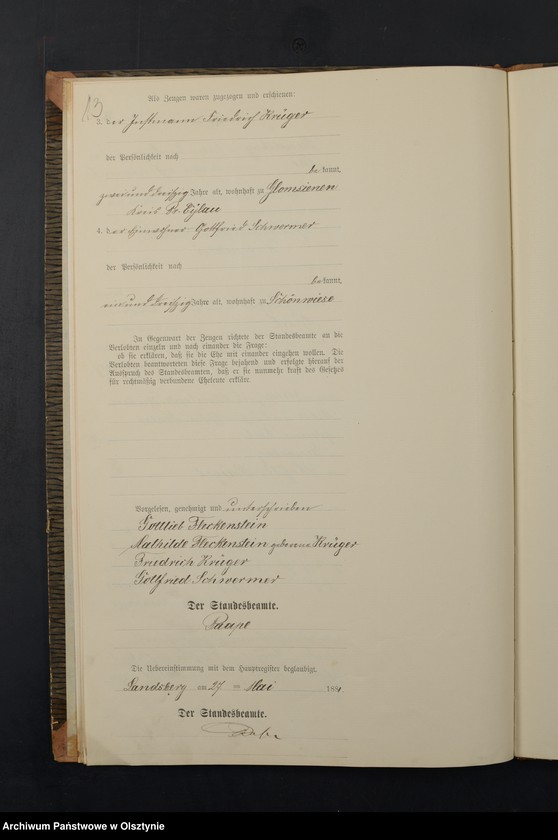 13
Als Zeugen waren zugezogen und erschienen:
a. der Instmann Friedrich Krüger
der Persönlichkeit nach
bekannt,
zweiunddreißig Jahre alt, wohnhaft zu Glomsienen
Kreis Pr. Eylau
b. der Einwohner Gottfried Schwermer
der Persönlichkeit nach
bekannt,
einunddreißig Jahre alt, wohnhaft zu Schönwiese
In Gegenwart der Zeugen richtete der Standesbeamte an die
Verlobten einzeln und nach einander die Frage:
ob sie erklären, daß sie die Ehe mit einander eingehen wollen. Die
Verlobten beantworteten diese Frage bejahend und erfolgte hierauf der
Ausspruch des Standesbeamten, daß er sie nunmehr kraft des Gesetzes
für rechtmäßig verbundene Eheleute erkläre.
Vorgelesen, genehmigt und unterschrieben
Gottlieb Heckenstein
Mathilde Heckenstein geborene Krüger
Friedrich Krüger
Gottfried Schwermer
Der Standesbeamte.
Die Uebereinstimmung mit dem Hauptregister beglaubigt.
Landsberg am 27 ten Mai 1881
Der Standesbeamte.
Archiwum Państwowe w Olsztynie